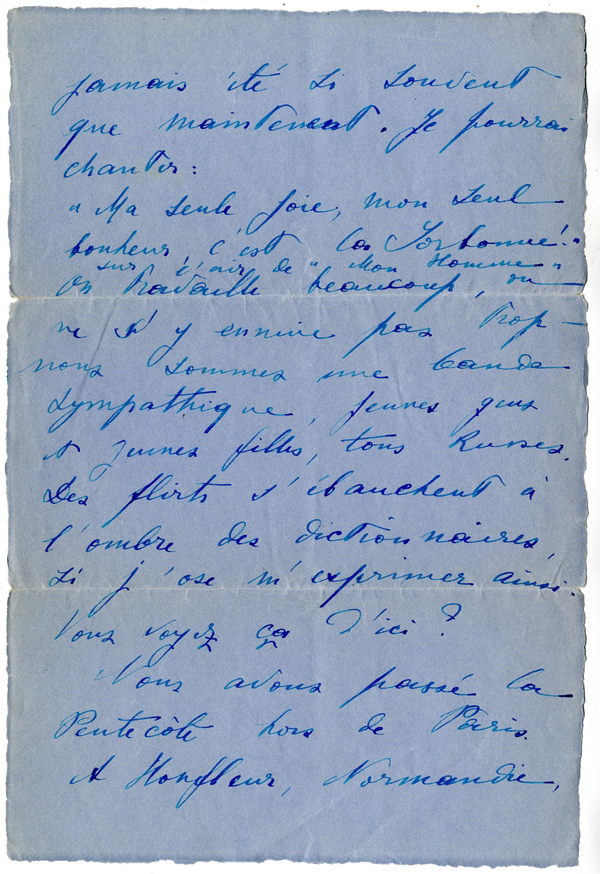 jamais été si souvent
que maintenant. Je pourrai
chanter:
"Ma seule joie, mon seul
bonheur c'est la Sorbonne!"
sur l'air de "Mon Homme"
On travaille beaucoup, on
ne s'y ennuie pas trop -
nous sommes une bande
sympathique, jeunes gens
et jeunes filles, tous Russes.
Des flirts s'ébauchent à
l'ombre des dictionnaires,
si j'ose m'exprimer ainsi.
Vous voyez ça d'ici?
Nous avons passé la
Pentecôte hors de Paris.
A Honfleur, Normandie,